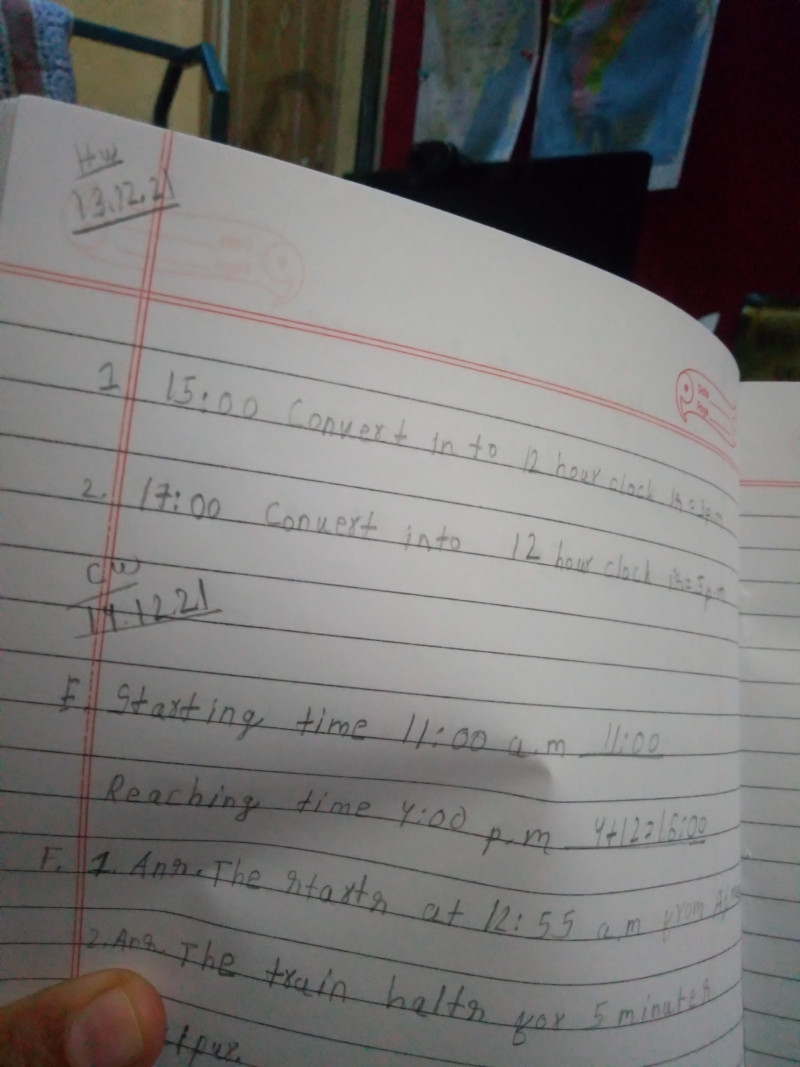 HW
13.12.21
1 15:00 Convert in to 12 hour clock is = 3p.m
2. 17:00 Convert into 12 hour clock is = 5p.m
CW
14.12.21
E. Starting time 11:00 a.m 11:00
Reaching time 4:00 p.m 4+12=16:00
F. 1. Ans. The starts at 12:55 a.m from
2. Ans. The train halts for 5 minutes